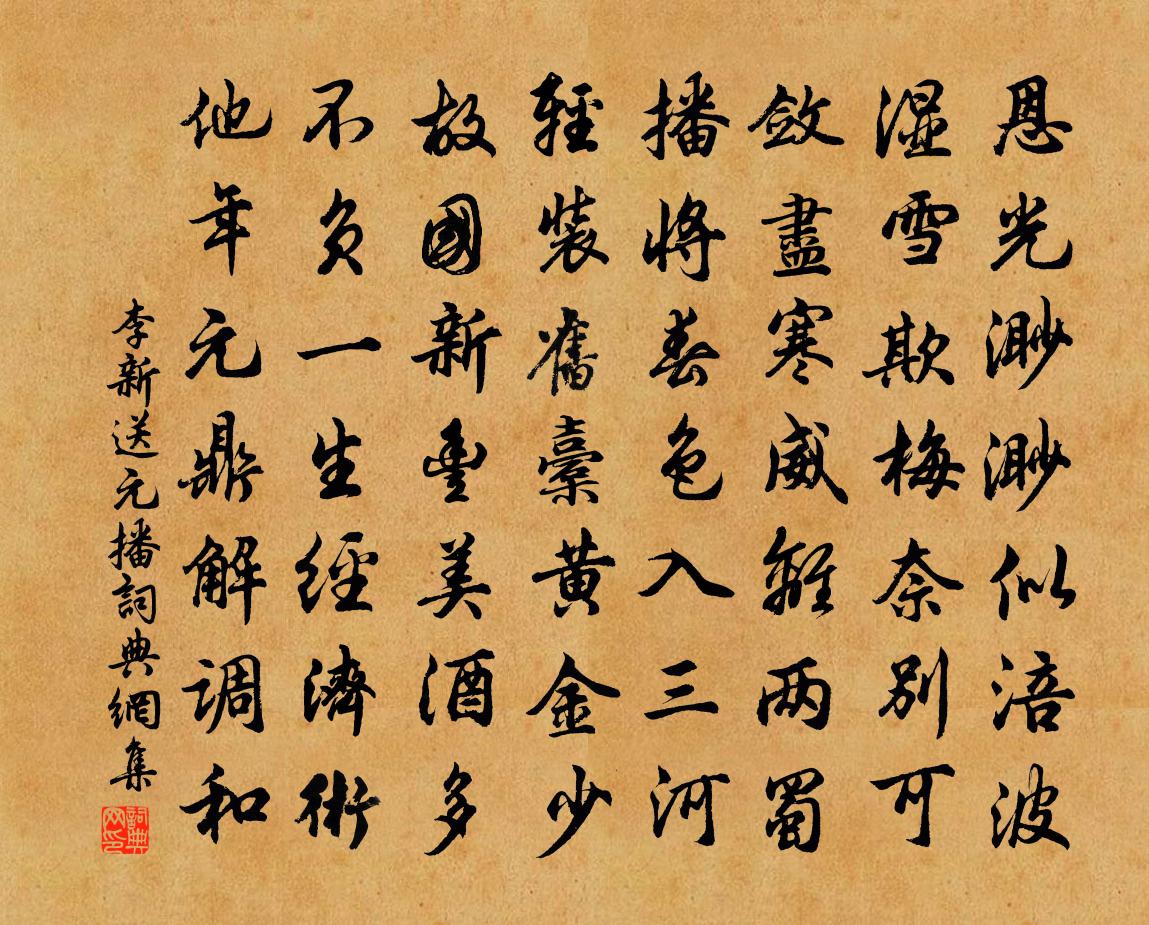 恩光渺渺似涪波
湿雪欺梅奈别可
斂盡寒威離两蜀
播將春色入三河
輕裝舊橐黄金少
故國新豐美酒多
不負一生經濟術
他年元鼎解调和
李新送元播詞典網集
詞典网印